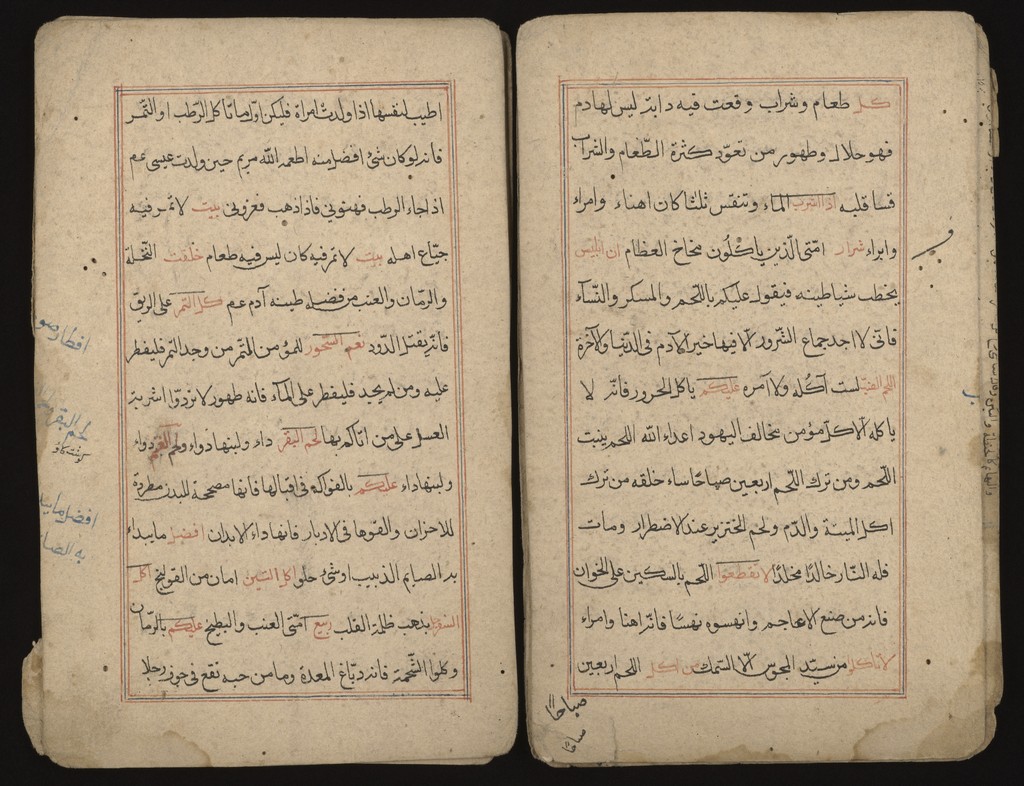 كل طعام وشراب وقعت فيه دابة ليس لها دم
فهو حلال وطهور من تعود كثرة الطعام والشراب
قسا قلبه اذا اشرب الماء وتنفس ثلثا كان اهناء وامراء
وابراء شرار امتى الذين ياكلون مخاخ العظام ان ابليس
يخطب شياطينه فيقول عليكم باللحم والمسكر والنسآء
فانى لا اجد جماع الشرور الا فيها خير الادم فى الدنيا والآخرة
اللحم الضب لست آكله ولا آمره عليكم ياكل الحرور فانه لا
ياكله الا كل مؤمن مخالف اليهود اعداء الله اللحم ينبت
اللحم ومن ترك اللحم اربعين صباحا ساء خلقه من ترك
اكل الميتة والدم ولحم الخنزير عند الاضطرار ومات
فله النار خالدا مخلدا لا تقطعوا اللحم بالسكين على الخوان
فانه من صنع الاعاجم وانهسوه نهسا فانه اهنا وامراء
لا تاكلوا من سيد المجوس الا السمك من اكل اللحم اربعين
صباحا
ساخا
اطيب لنفسها اذا ولدت امراة فليكن اول ما تاكل الرطب او التمر
فانه لو كان شئ افضل منه اطعمه الله مريم حين ولدت عيسى عم
اذا جاء الرطب فهنونى فاذا ذهب فعزونى بيت لا تمر فيه
جياع اهله بيت لا تمر فيه كان ليس فيه طعام خلقت النخلة
والرمان والعنب من فضل طينه آدم عم كل التمر على الريق
فانه يقتل الدود نعم السحور للمؤمن التمر من وجد التمر فليفطر
عليه ومن لم يجد فليفطر على المآء فانه طهور لا تردوا اشربة
العسل على من اتاكم بها لحم البقر داء ولبنها دواء ولحم الغنم دواء
ولبنها داء عليكم بالفواكه فى اقبالها فانها مصححة للبدن مطردة
للاحزان والقوها فى الادبار فانها داء الابدان افضل ما يبداء
به الصايم الذبيب او شئ حلو اكل التين امان من القولنج اكل
السفرجل يذهب ظلمة القلب ربيع امتى العنب والبطيخ عليكم بالرمان
وكلوا الشحمة فانه دباغ المعدة وما من حبه تقع فى جوف رجل
افطار
لحم البقر
افضل ما
به الصا